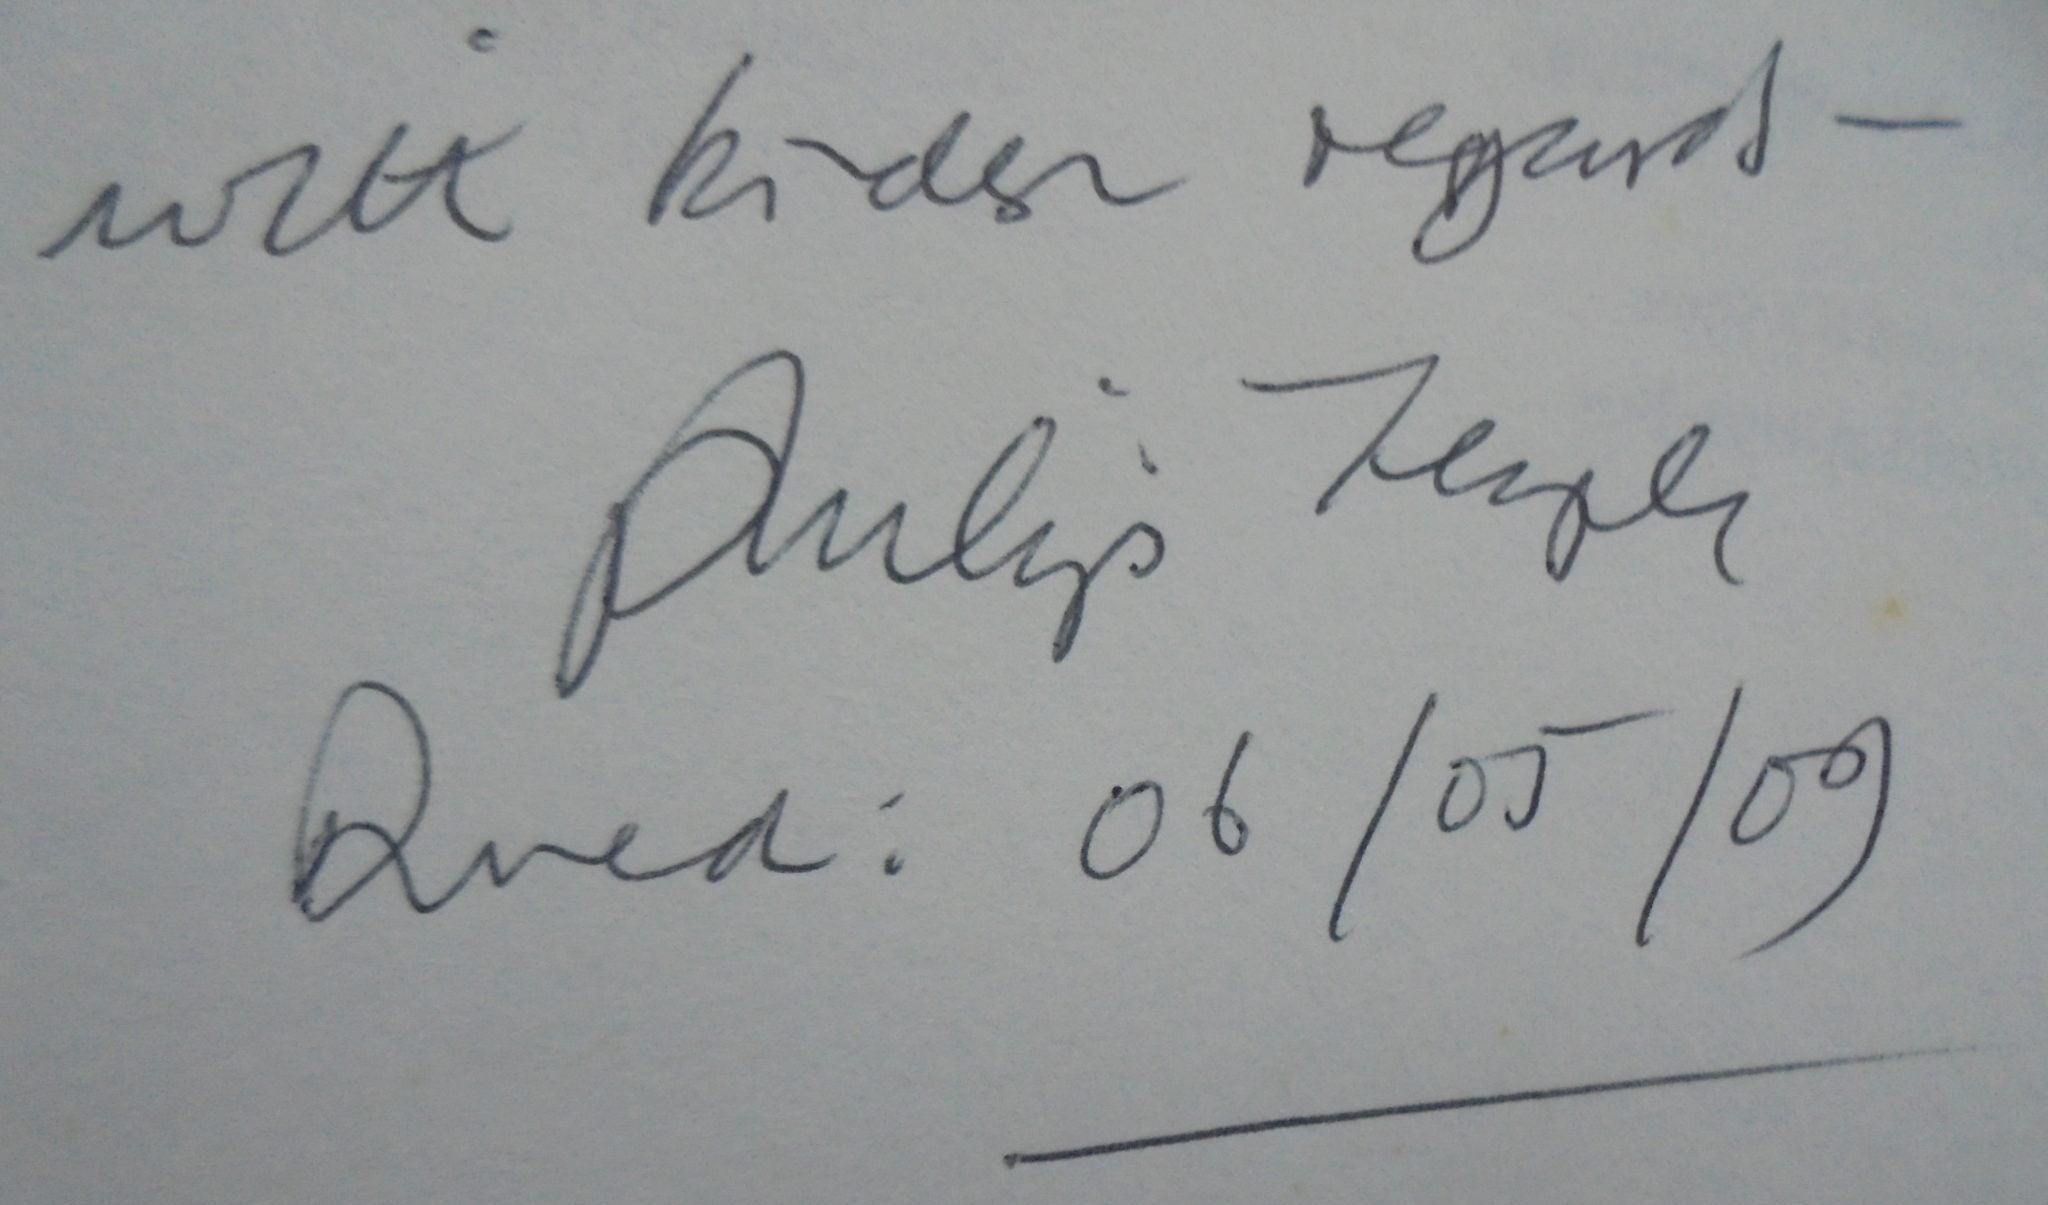 with kindest regards —
Philip Temple
06/05/09